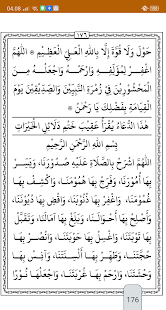 04.08
١٧٦
حَوْلَ وَلَا قُوَّةَ إِلَّا بِاللهِ الْعَلِيِّ الْعَظِيْمِ * اَللّٰهُمَّ
اغْفِرْ لِمُؤَلِّفِهِ وَارْحَمْهُ وَاجْعَلْهُ مِنَ
الْمَحْشُوْرِيْنَ فِيْ زُمْرَةِ النَّبِيِّيْنَ وَالصِّدِّيْقِيْنَ يَوْمَ
الْقِيَامَةِ بِفَضْلِكَ يَا رَحْمٰنُ *
هٰذَا الدُّعَاءُ يُقْرَأُ عَقِيْبَ خَتْمِ دَلَائِلِ الْخَيْرَاتِ
بِسْمِ اللهِ الرَّحْمٰنِ الرَّحِيْمِ
اَللّٰهُمَّ اشْرَحْ بِالصَّلَاةِ عَلَيْهِ صُدُوْرَنَا، وَيَسِّرْ
بِهَا أُمُوْرَنَا، وَفَرِّجْ بِهَا هُمُوْمَنَا، وَاكْشِفْ بِهَا
غُمُوْمَنَا، وَاغْفِرْ بِهَا ذُنُوْبَنَا، وَاقْضِ بِهَا دُيُوْنَنَا،
وَأَصْلِحْ بِهَا أَحْوَالَنَا، وَبَلِّغْ بِهَا آمَالَنَا، وَتَقَبَّلْ
بِهَا تَوْبَتَنَا، وَاغْسِلْ بِهَا حَوْبَتَنَا، وَانْصُرْ بِهَا
حُجَّتَنَا، وَطَهِّرْ بِهَا أَلْسِنَتَنَا، وَآنِسْ بِهَا
وَحْشَتَنَا، وَارْحَمْ بِهَا غُرْبَتَنَا، وَاجْعَلْهَا نُوْرًا
176